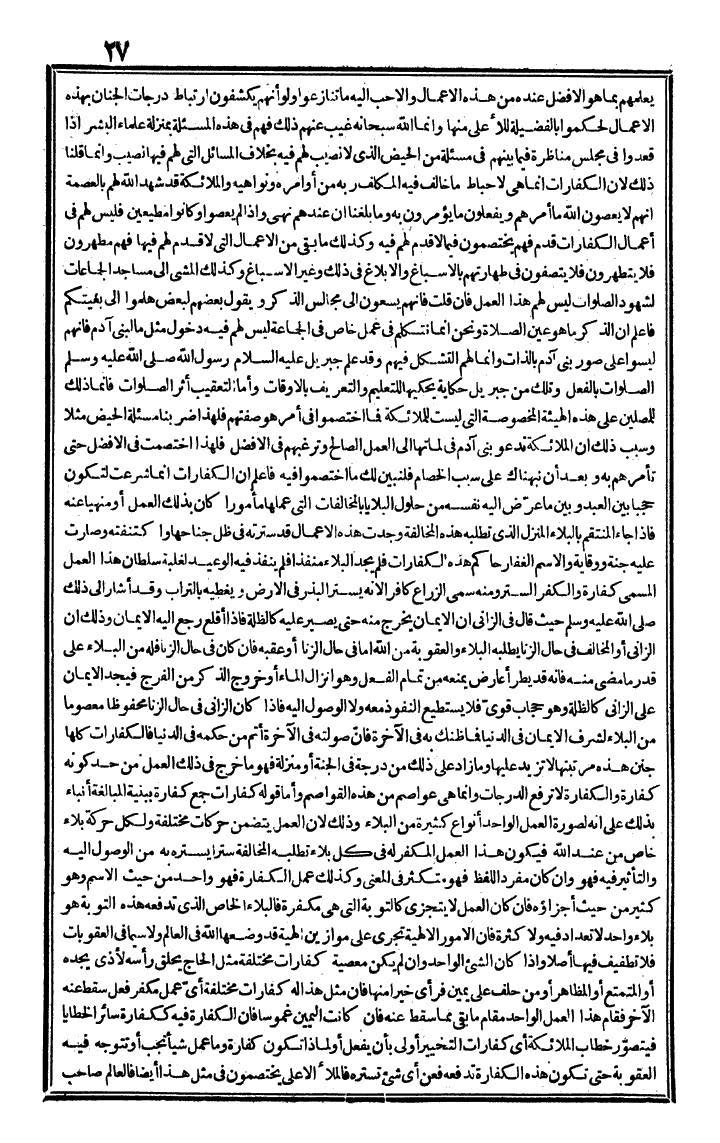 ٢٧
يعلمهم بما هو الافضل عنده من هذه الاعمال والاحب اليه ما تنازعوا ولو أنهم يكشفون ارتباط درجات الجنان بهذه
الاعمال لحكموا بالفضيلة للأعلى منها وانما الله سبحانه غيب عنهم ذلك فهم فى هذه المسئلة بمنزلة علماء البشر اذا
قعدوا فى مجلس مناظرة فيما بينهم فى مسئلة من الحيض الذى لا نصيب لهم فيه بخلاف المسائل التى لهم فيها نصيب وانما قلنا
ذلك لان الكفارات انما هى لاحباط ما خالف فيه المكلف ربه من أوامره ونواهيه والملائكة قد شهد الله لهم بالعصمة
انهم لا يعصون الله ما أمرهم ويفعلون ما يؤمرون به وما بلغنا ان عندهم نهى واذا لم يعصوا وكانوا مطيعين فليس لهم فى
أعمال الكفارات قدم فهم يختصمون فيما لا قدم لهم فيه وكذلك ما بقى من الاعمال التى لا قدم لهم فيها فهم مطهرون
فلا يتطهرون فلا يتصفون فى طهارتهم بالاسباغ والابلاغ فى ذلك وغير الاسباغ وكذلك المشى الى مساجد الجماعات
لشهود الصلوات ليس لهم هذا العمل فان قلت فانهم يسعون الى مجالس الذكر ويقول بعضهم لبعض هلموا الى بغيتكم
فاعلم ان الذكر ما هو عين الصلاة ونحن انما نتكلم فى عمل خاص فى الجماعة ليس لهم فيه دخول مثل ما لبنى آدم فانهم
ليسوا على صور بنى آدم بالذات وانما لهم التشكل فيهم وقد علم جبريل عليه السلام رسول الله صلى الله عليه وسلم
الصلوات بالفعل وتلك من جبريل حكاية يحكيها للتعليم والتعريف بالاوقات وأما التعقيب أثر الصلوات فانما ذلك
للمصلين على هذه الهيئة المخصوصة التى ليست للملائكة فما اختصموا فى أمر هو صفتهم فلهذا ضربنا مسئلة الحيض مثلا
وسبب ذلك ان الملائكة تدعو بنى آدم فى لماتها الى العمل الصالح وترغبهم فى الافضل فلهذا اختصمت فى الافضل حتى
تأمرهم به وبعد أن نبهناك على سبب الخصام فلنبين لك ما اختصموا فيه فاعلم ان الكفارات انما شرعت لتكون
حجبا بين العبد وبين ما عرّض اليه نفسه من حلول البلايا بالمخالفات التى عملها مأمورا كان بذلك العمل أو منهيا عنه
فاذا جاء المنتقم بالبلاء المنزل الذى تطلبه هذه المخالفة وجدت هذه الاعمال قد سترته فى ظل جناحها واكتنفته وصارت
عليه جنة ووقاية والاسم الغفار حاكم هذه الكفارات فلم يجد البلاء منفذا فلم ينفذ فيه الوعيد لغلبة سلطان هذا العمل
المسمى كفارة والكفر الستر ومنه سمى الزراع كافرا لانه يستر البذر فى الارض ويغطيه بالتراب وقد أشار الى ذلك
صلى الله عليه وسلم حيث قال فى الزانى ان الايمان يخرج منه حتى يصير عليه كالظلة فاذا أقلع رجع اليه الايمان وذلك ان
الزانى أو المخالف فى حال الزنا يطلبه البلاء والعقوبة من الله اما فى حال الزنا أو عقيبه فان كان فى حال الزنا فله من البلاء على
قدر ما مضى منه فانه قد يطرأ عارض يمنعه من تمام الفعل وهو انزال الماء أو خروج الذكر من الفرج فيجد الايمان
على الزانى كالظلة وهو حجاب قوى فلا يستطيع النفوذ معه ولا الوصول اليه فاذا كان الزانى فى حال الزنا محفوظا معصوما
من البلاء لشرف الايمان فى الدنيا فما ظنك به فى الآخرة فانّ صولته فى الآخرة أتم من حكمه فى الدنيا فالكفارات كلها
جنن هذه مرتبتها لا تزيد عليها وما زاد على ذلك من درجة فى الجنة أو منزلة فهو ما خرج فى ذلك العمل من حد كونه
كفارة والكفارة لا ترفع الدرجات وانما هى عواصم من هذه القواصم وأما قوله كفارات جمع كفارة ببنية المبالغة أنباء
بذلك على انه لصورة العمل الواحد أنواع كثيرة من البلاء وذلك لان العمل يتضمن حركات مختلفة ولكل حركة بلاء
خاص من عند الله فيكون هذا العمل المكفر له فى كل بلاء تطلبه المخالفة سترا يستره به من الوصول اليه
والتأثير فيه فهو وان كان مفرد اللفظ فهو متكثر فى المعنى وكذلك عمل الكفارة فهو واحد من حيث الاسم وهو
كثير من حيث أجزاؤه فان كان العمل لا يتجزى كالتوبة التى هى مكفرة فالبلاء الخاص الذى تدفعه هذه التوبة هو
بلاء واحد لا تعداد فيه ولا كثرة فان الامور الالهية تجرى على موازين الهية قد وضعها الله فى العالم ولا سيما فى العقوبات
فلا تطفيف فيها أصلا واذا كان الشئ الواحد وان لم يكن معصية كفارات مختلفة مثل الحاج يحلق رأسه لأذى يجده
أو المتمتع أو المظاهر أو من حلف على يمين فرأى خيرا منها فان مثل هذا له كفارات مختلفة أىّ عمل مكفر فعل سقط عنه
الآخر فقام هذا العمل الواحد مقام ما بقى مما سقط عنه فان كانت اليمين غموسا فان الكفارة فيه ككفارة سائر الخطايا
فيتصوّر خطاب الملائكة أى كفارات التخيير أولى بأن يفعل أو لماذا تكون كفارة وما عمل شيأ تجب أو تتوجه فيه
العقوبة حتى تكون هذه الكفارة تدفعه فعن أى شئ تستره فالملأ الاعلى يختصمون فى مثل هذا أيضا فالعالم صاحب